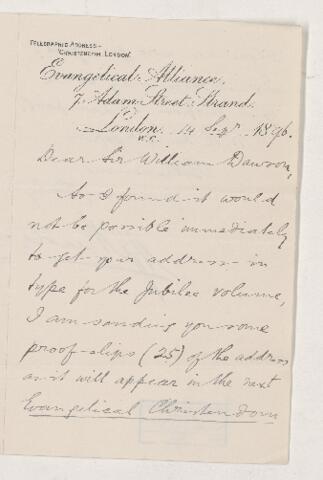 TELEGRAPHIC ADDRESS—
"CHRISTENDOM, LONDON"
Evangelical Alliance,
7, Adam Street, Strand,
London, 14 Sepr. 1896.
W.C.
Dear Sir William Dawson,
As I found it would
not be possible immediately
to get your address in
type for the Jubilee volume,
I am sending you some
proof-slips (25) of the address
as it will appear in the next
Evangelical Christendom